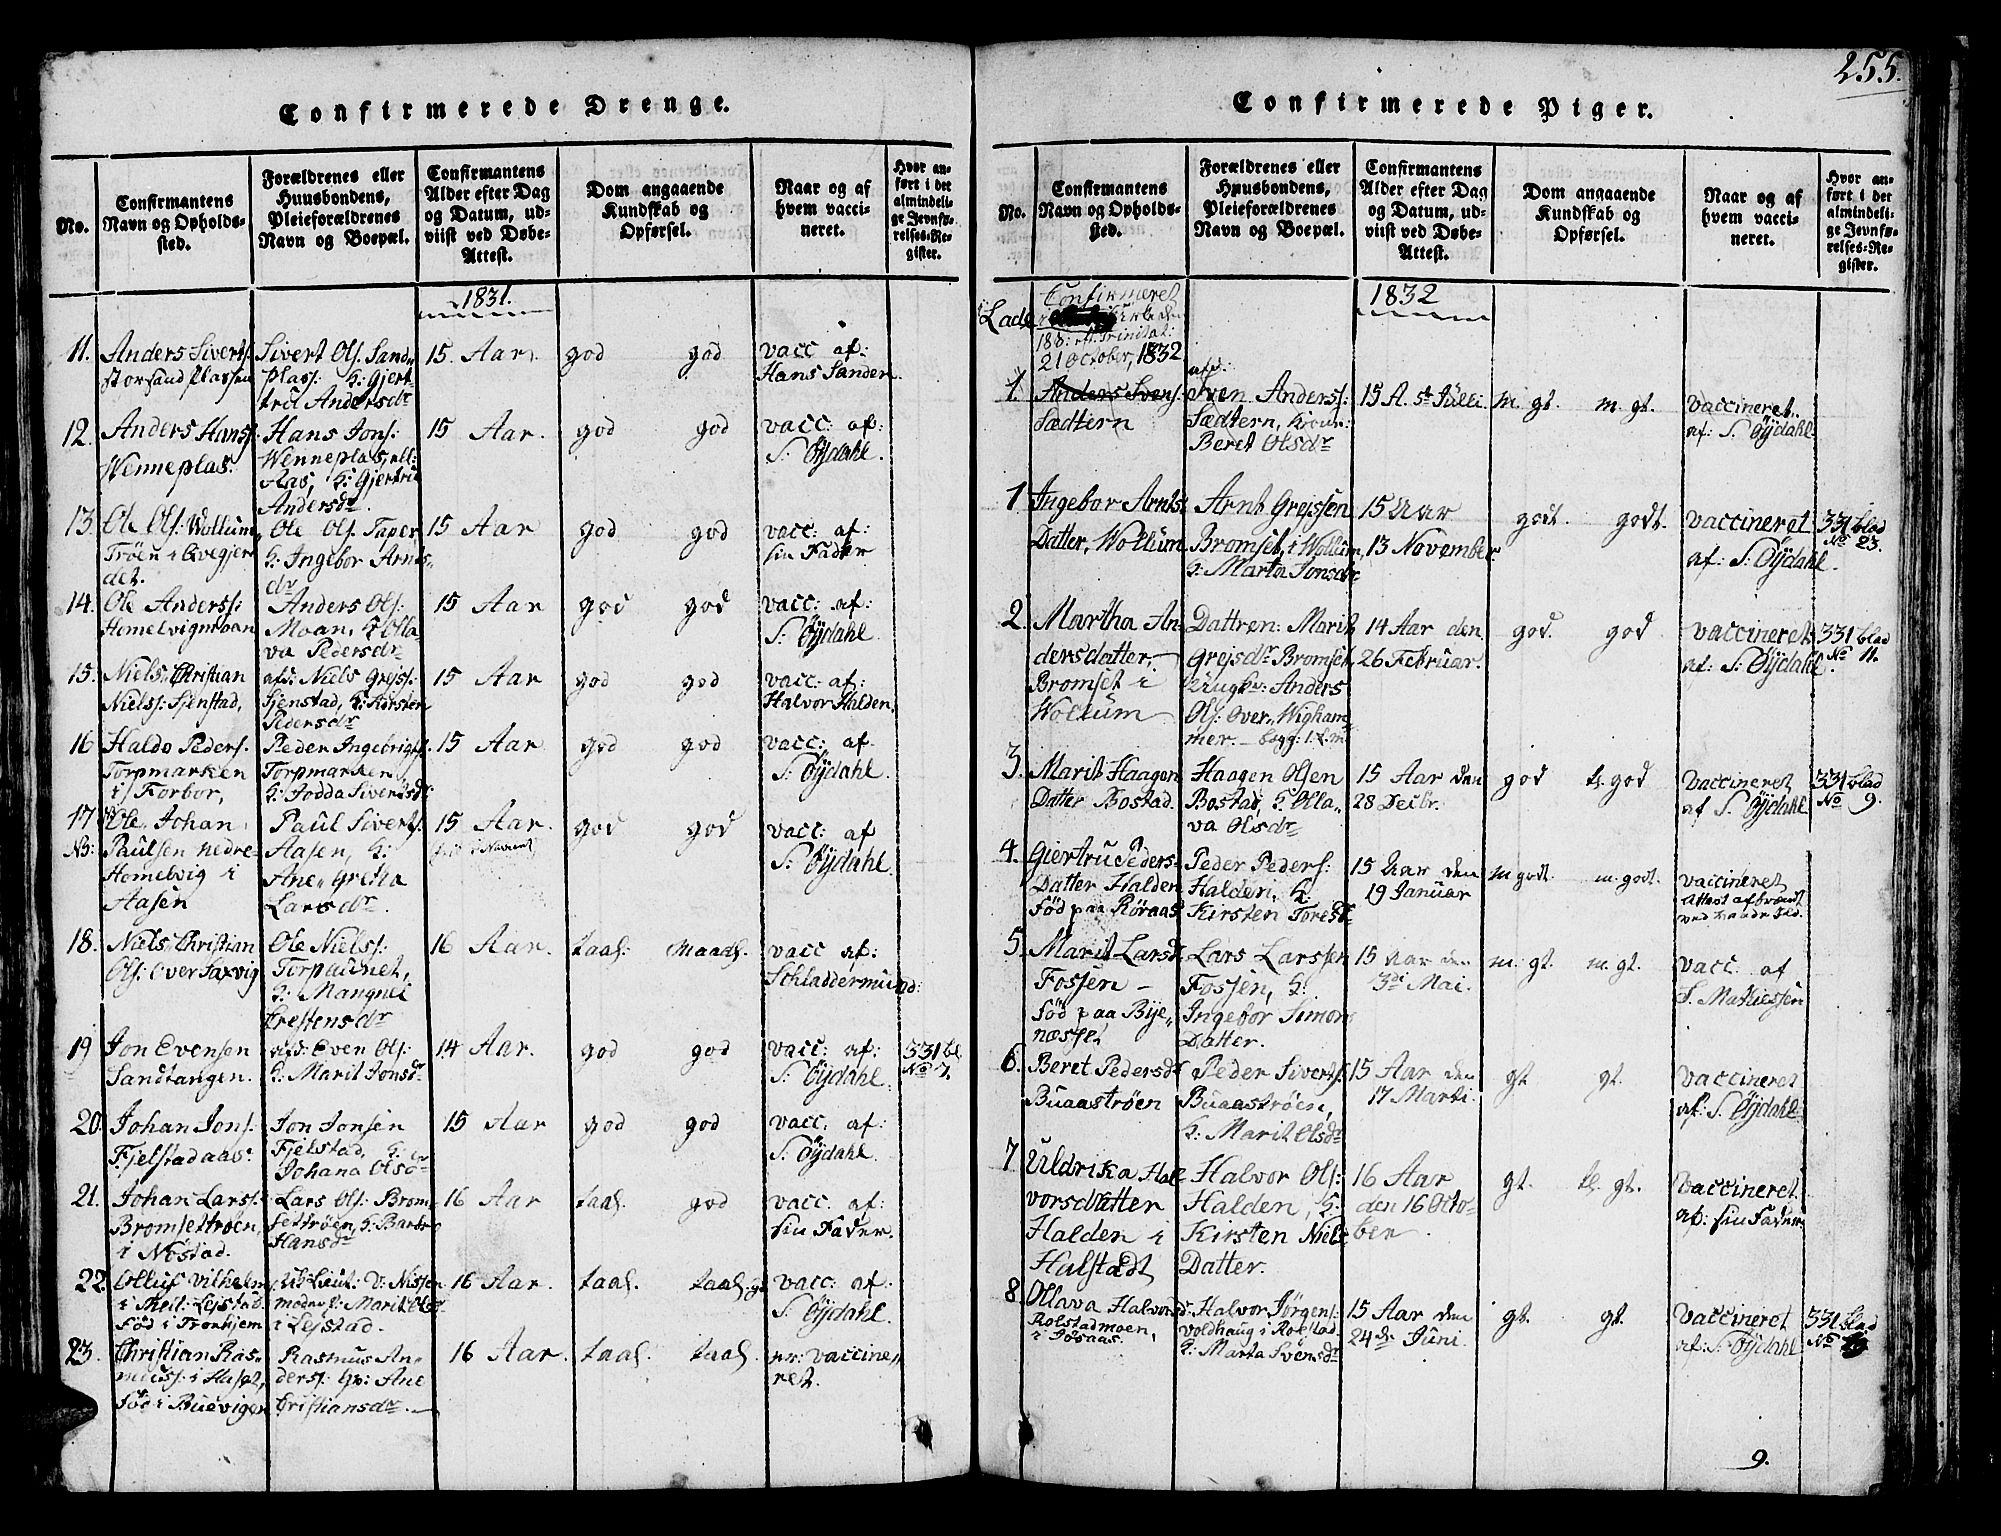 Confirmerede Drenge.
No.
Confirmantens
Navn og Opholds-
sted.
Forældrenes eller
Huusbondens,
Pleieforældrenes
Navn og Boepæl.
Confirmantens
Alder efter Dag
og Datum, ud-
viist ved Døbe-
Attest.
Dom angaaende
Kundskab og
Opførsel.
Naar og af
hvem vacci-
neret.
Hvor an-
ført i det
almindeli-
ge Jevnfø-
relses-Re-
gister.
1831.
11. Anders Siverts:
Storsandplassen
Sivert Ols. Sand-
plass: H: Gjert-
rud Andersdr
15. Aar.
god god
vacc af:
Hans Sanden.
12. Anders Hans:
Wenneplas:
Hans Jons:
Wenneplas, ell:
Aas, H: Gjertrud
Andersdr
15 Aar.
god god
vacc: af:
S: Øydahl.
13. Ole Ols: Wollum,
Trøen i Qvegjer
det.
Ole Ols. Taper
H: Ingebor Arnts-
dr
15 Aar
god god
vacc: af:
sin Fader
14. Ole Anders:
Homelvigmoan
Anders Ols:
Moan, H: Olla-
va Pedersdr
15 Aar
god god
vacc: af:
S: Øydahl.
15. Niels Christian
Niels: Sjenstad,
afd: Niels Grejs:
Sjenstad, H: Kirsten
Pedersdr
15 Aar
god god
vacc: af:
Halvor Halden.
16 Haldo Peders.
Torpmarken
i Forbor,
Peder Ingebrigts.
Torpmarken,
H: Jodda Sivertsdr:
15 Aar
god god
vacc: af.
S: Øydahl.
17 Ole Johan
NB: Paulsen nedre-
Homelvig i
Aasen
Paul Siverts.
Aasen, H:
Ane Greta
Larsdr.
15 Aar.
god god
vacc: af
S: Øydahl
18. Niels Christian
Ols: Over Saxvig
Ole Niels:
Torpaunet,
H: Mangnel
Crestensdr
16 Aar.
taal: maadl.
vacc af:
Schladdermund:
19 Jon Evensen
Sandtangen.
afd: Even Ols:
H: Marit Jonsdr
14 Aar.
god god
vacc: af:
S: Øydahl.
331 bl.
No 7.
20. Johan Jons:
Fjelstadaas:
Jon Jonsen
Fjelstad, H:
Johana Olsdr
15 Aar
god god
vacc: af:
S: Øydahl.
21. Johan Lars:
Bromsettrøen,
i Nøstad.
Lars Ols: Brom
settrøen, H: Barbro
Hansdr
16 Aar
taal. god
vacc. af:
sin Fader.
22. Olluf Vilhelm
Fød i Tronhjem
Lieut: V: Nissen
Marit Olsdr
i Lejstad.
16 Aar.
taal. taal.
vacc: af:
S: Øydahl.
23. Christian Ras-
Fød i Buevigen
Rasmus An-
ders: Gv: Ane
Cristiansdr.
16 Aar.
taal. taal.
pr: vaccine-
ret.
255.
Confirmerede Piger.
No.
Confirmantens
Navn og Opholds-
sted.
Forældrenes eller
Huusbondens,
Pleieforældrenes
Navn og Boepæl.
Confirmantens
Alder efter Dag
og Datum, ud-
viist ved Døbe-
Attest.
Dom angaaende
Kundskab og
Opførsel.
Naar og af
hvem vacci-
neret.
Hvor an-
ført i det
almindeli-
ge Jevnfø-
relses-Re-
gister.
1832
Confirmeret
Lade Kirke den
18de: eft: Trinitat:
21 October, 1832
1. Anders Svens:
Sædtern
afd:
Sven Anders:
Sædtern, Kone:
Beret Olsdr
15 A. 5te Julli
m. gt. m. gt.
vaccineret.
af: S. Øydahl
1 Ingebor Arnts
Datter, Wollum
Arnt Grejssen
Bromset, i Wollum,
H: Marta Jonsdr
15 Aar
13 November
godt. godt.
vaccineret
af: S: Øydahl.
331 blad
No 23.
2. Martha An-
dersdatter,
Bromset i
Wollum
Dattren: Marit
Grejsdr Bromset,
Ungkr: Anders
Ols: Over, Wigham-
mer. - begg: 1. L. m:
14 Aar den
26 Februar.
god. god
vaccineret
af: S: Øydahl
331 blad
No 11.
3. Marit Haagen
Datter Bostad.
Haagen Olsen
Bostad, H: Olla-
va Olsdr
15 Aar den
28 Decbr.
god tl. god
vaccineret
af S. Øydahl
331 blad
No 9.
4. Giertru Peders-
Datter Halden
Fød paa Røraas
Peder Peders:
Halden, H:
Kirsten Toresdr
15 Aar den
19 Januar
m godt. m. godt.
vaccineret
Attest
5. Marit Larsdr
Fossen -
Fød paa Bye-
næsset
Lars Larssen
Fossen, H:
Ingebor Simon
Datter.
15 Aar den
3di Mai.
m. gt. m. gt.
vacc: af
S. Mathiessen
6. Beret Pedersdr
Buaastrøen
Peder Siverts:
Buaastrøen,
H: Marit Olsdr
15 Aar den
17 Marti.
gt. gt.
vaccineret
af: S. Øydahl
7 Uldrika Hal-
vorsdatter
Halden i
Halstædt
Halvor Ols:
Halden, H:
Kirsten Niels
Datter.
16 Aar
den 16 Octo-
ber
gt. tl. gt.
vaccineret
af: sin Fader
8. Ollava Halvorsd.
Rolstadmoen,
i Aosaas.
Halvor Jørgens:
Voldhaug i Rolstad
H: Marta Svensdr
15 Aar den
24de Juni.
gt. gt.
vaccineret
af: S: Øydahl
331 blad
No
9.